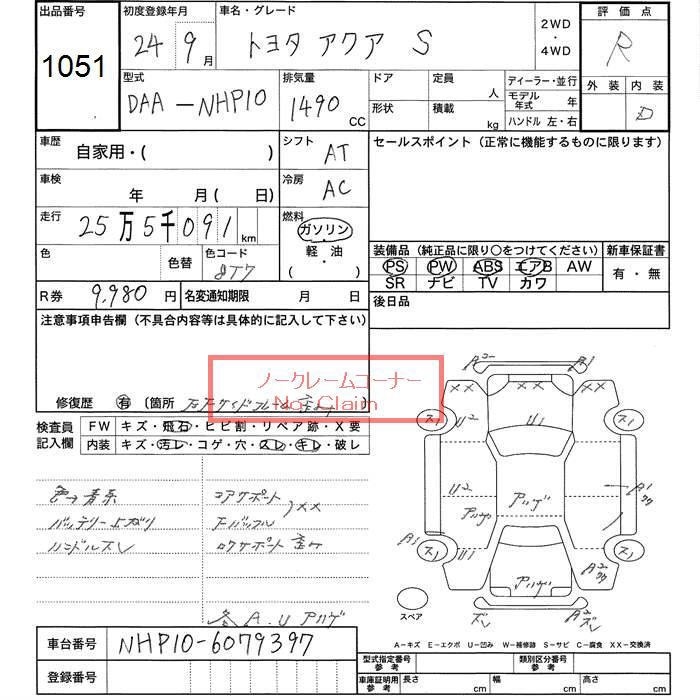 出品番号
1051
初度登録年月
24年9月
車名・グレード
トヨタ アクア S
2WD
・
4WD
評価点
R
外装 内装
D
型式
DAA-NHP10
排気量
1490 CC
ドア
定員 人
ディーラー・並行
モデル年式 年
形状
積載 kg
ハンドル 左・右
車歴
自家用・( )
シフト
AT
セールスポイント(正常に機能するものに限ります)
車検
年 月(日)
冷房
AC
走行
25万5千091 km
燃料
ガソリン
軽・油
( )
色
色替
色コード
8T7
装備品(純正品に限り○をつけてください)
PS PW ABS エアB AW
SR ナビ TV カワ
新車保証書
有・無
R券 9,980 円
名変通知期限 月 日
後日品
注意事項申告欄(不具合内容等は具体的に記入して下さい)
ノークレームコーナー
No Claim
修復歴 有 〔箇所
検査員記入欄
FW キズ・飛石・ヒビ割・リペア跡・X要
内装 キズ・汚レ・コゲ・穴・スレ・キレ・破レ
色→青系
コアサポート
XX
バッテリー上がり
Fバックル
ハンドルスレ
ロアサポート
各 A.U アリ
R2 A1
XX XX
U2 U1
U2
A1
A1 U1
A2
スペア
A-キズ E-エクボ U-凹み W-補修跡 S-サビ C-腐食 XX-交換済
車台番号
NHP10-6079397
登録番号
型式指定番号 参考
類別区分番号 参考
車庫証明用 参考
長さ cm
幅 cm
高さ cm